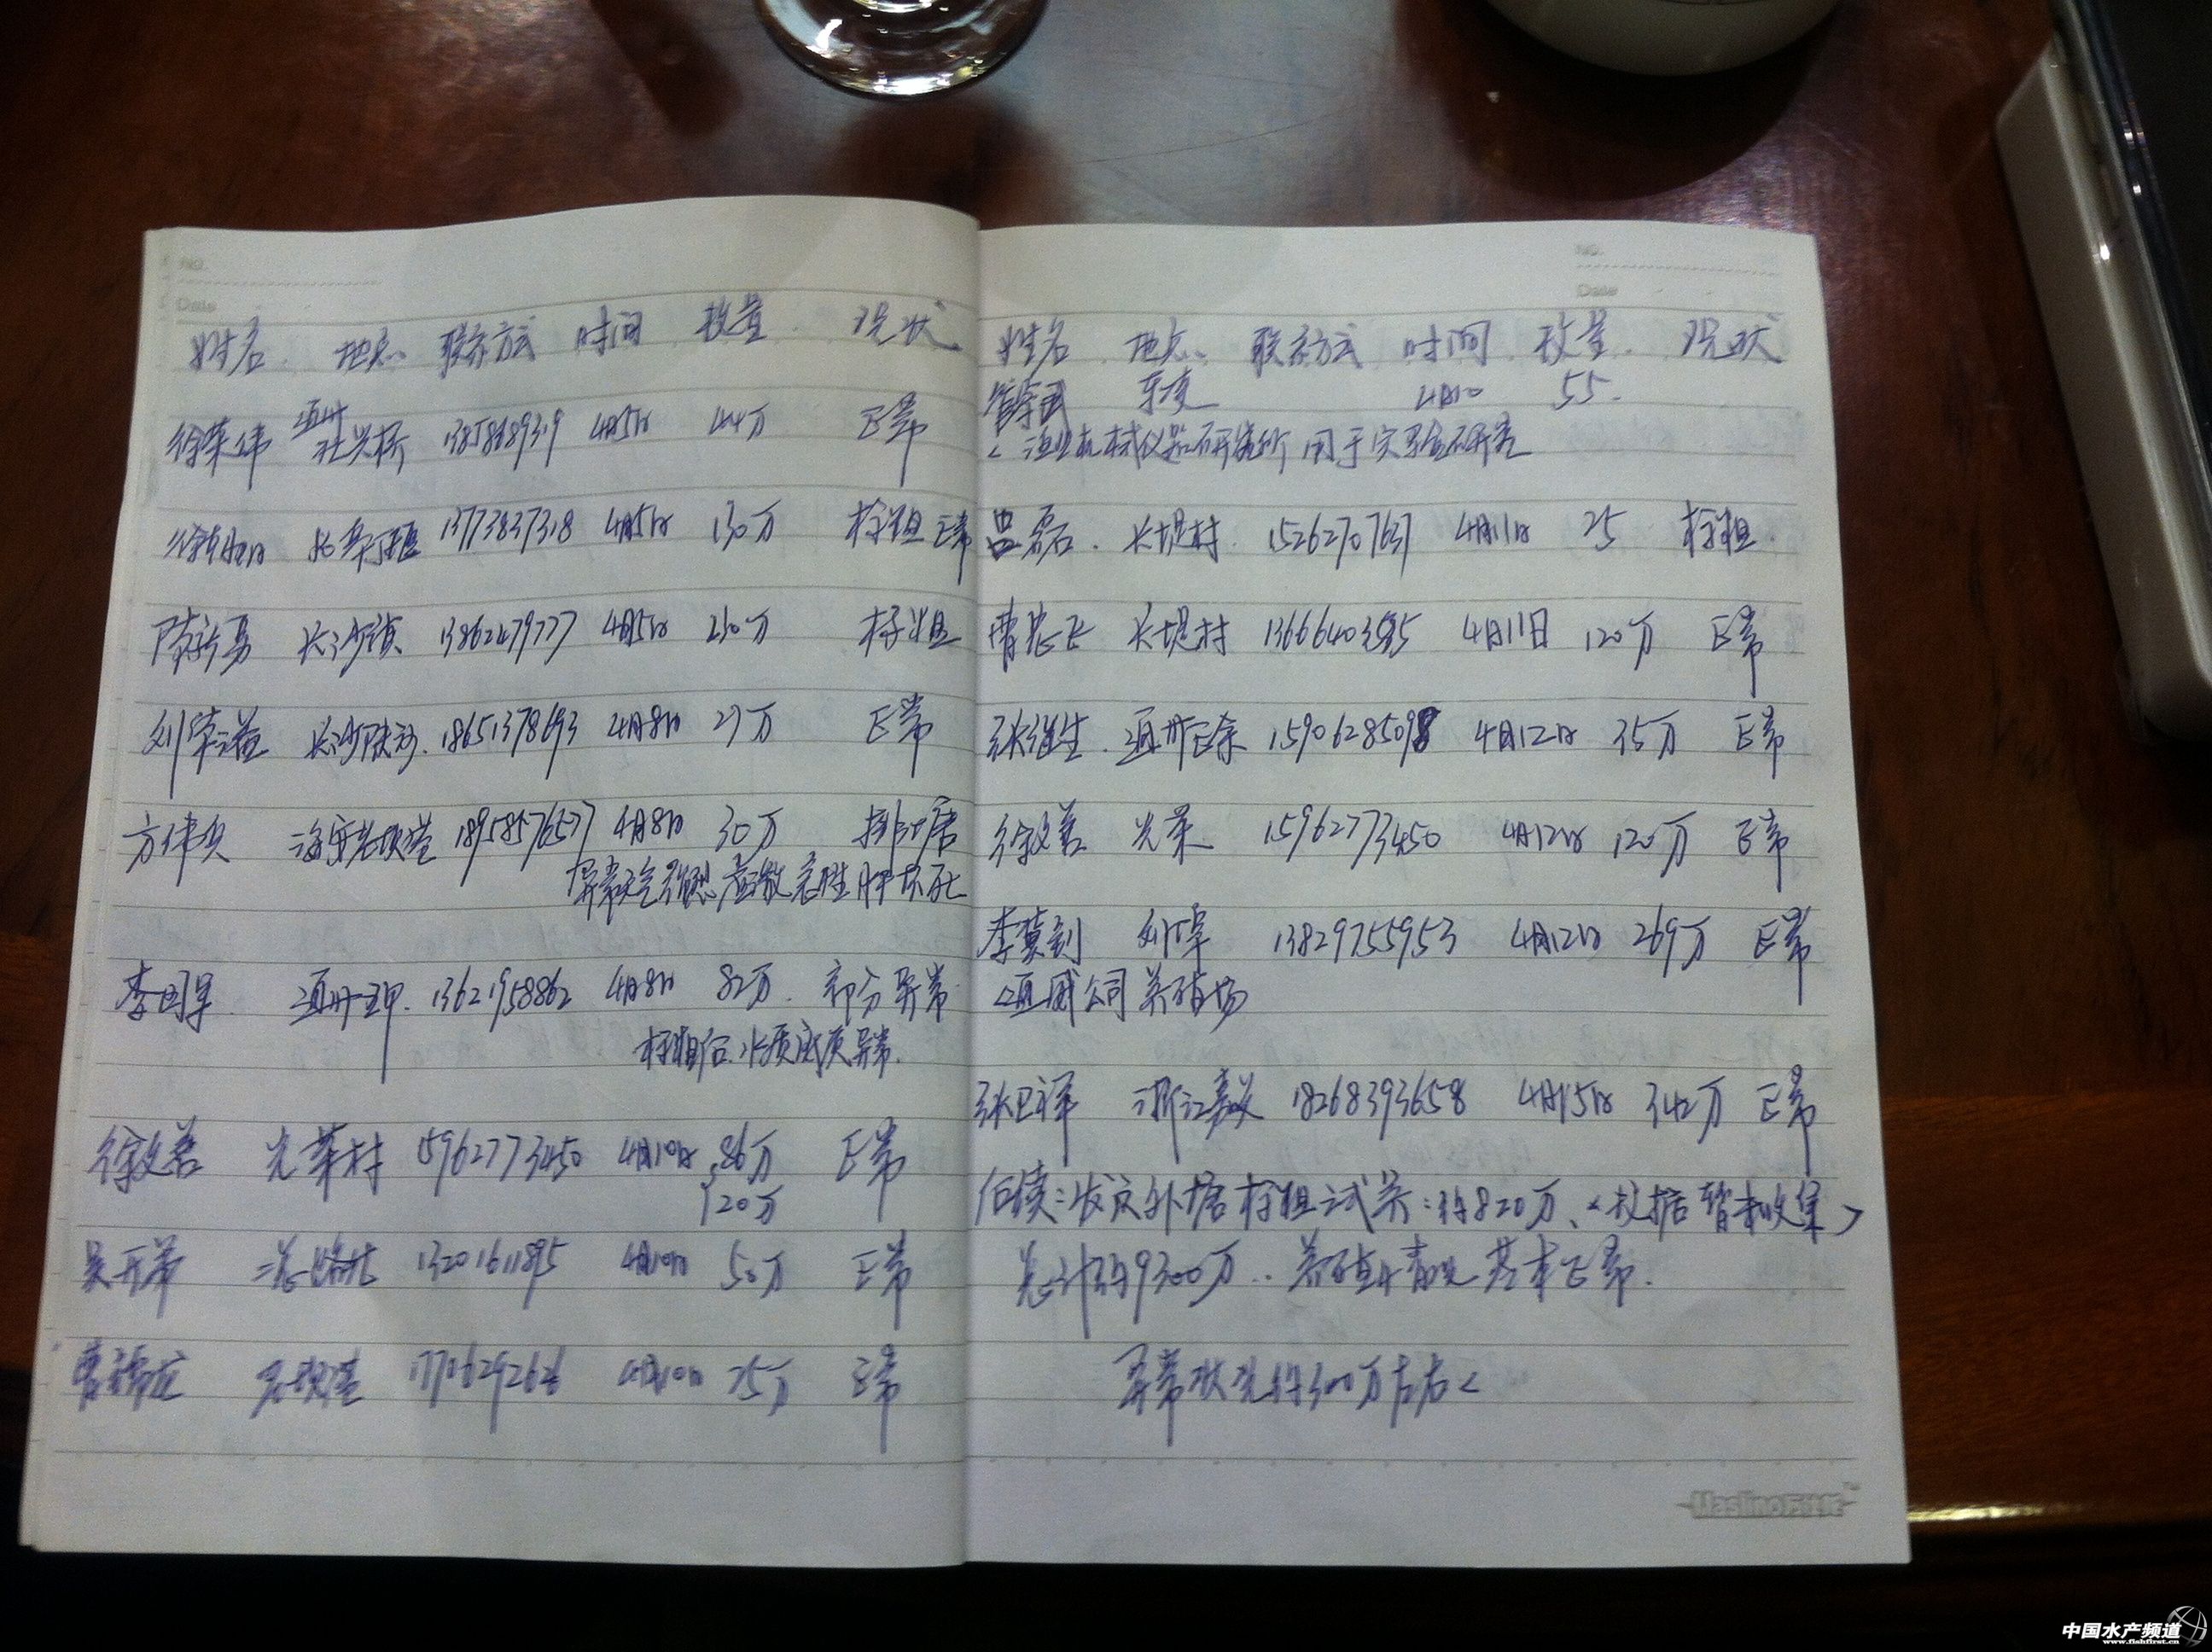 NO.
Date
姓名 地点 联系方式 时间 数量 现状
徐荣伟 通州 北兴桥 13858689319 4月5日 44万 正常
13773837318 4月5日 130万 标粗 正常
陈新勇 长沙镇 13862479777 4月5日 230万 标粗
刘荣益 长沙 18651378693 4月8日 27万 正常
方伟 老坝港 18958576577 4月8日 30万 排塘
异常天气 应激 急性肝坏死
李国军 通州 13621958862 4月8日 82万 部分异常
标粗后水质底质异常
徐文善 光荣村 5962773450 4月10日 86万 正常
120万
吴开荣 13201611895 4月10日 50万 正常
曹 老坝港 1770629262 4月10日 75万 正常
NO.
Date
姓名 地点 联系方式 时间 数量 现状
管 东凌 4月10 55
渔业机械仪器研究所 用于实验研究
吕磊 长堤村 15262707637 4月11日 25 标粗
曹 长堤村 136664035 4月11日 120万 正常
张继生 通州正余 15906285098 4月12日 35万 正常
徐文善 光荣 15962773450 4月12日 120万 正常
李冀到 刘埠 13829755953 4月12日 269万 正常
通威公司养殖场
张卫祥 浙江嘉兴 18268393658 4月15日 342万 正常
后续:发京外塘标粗试养:约820万、<数据暂未收集>
总计约9300万..养殖情况基本正常.
异常状况约300万左右
中国水产频道
www.fishfirst.cn